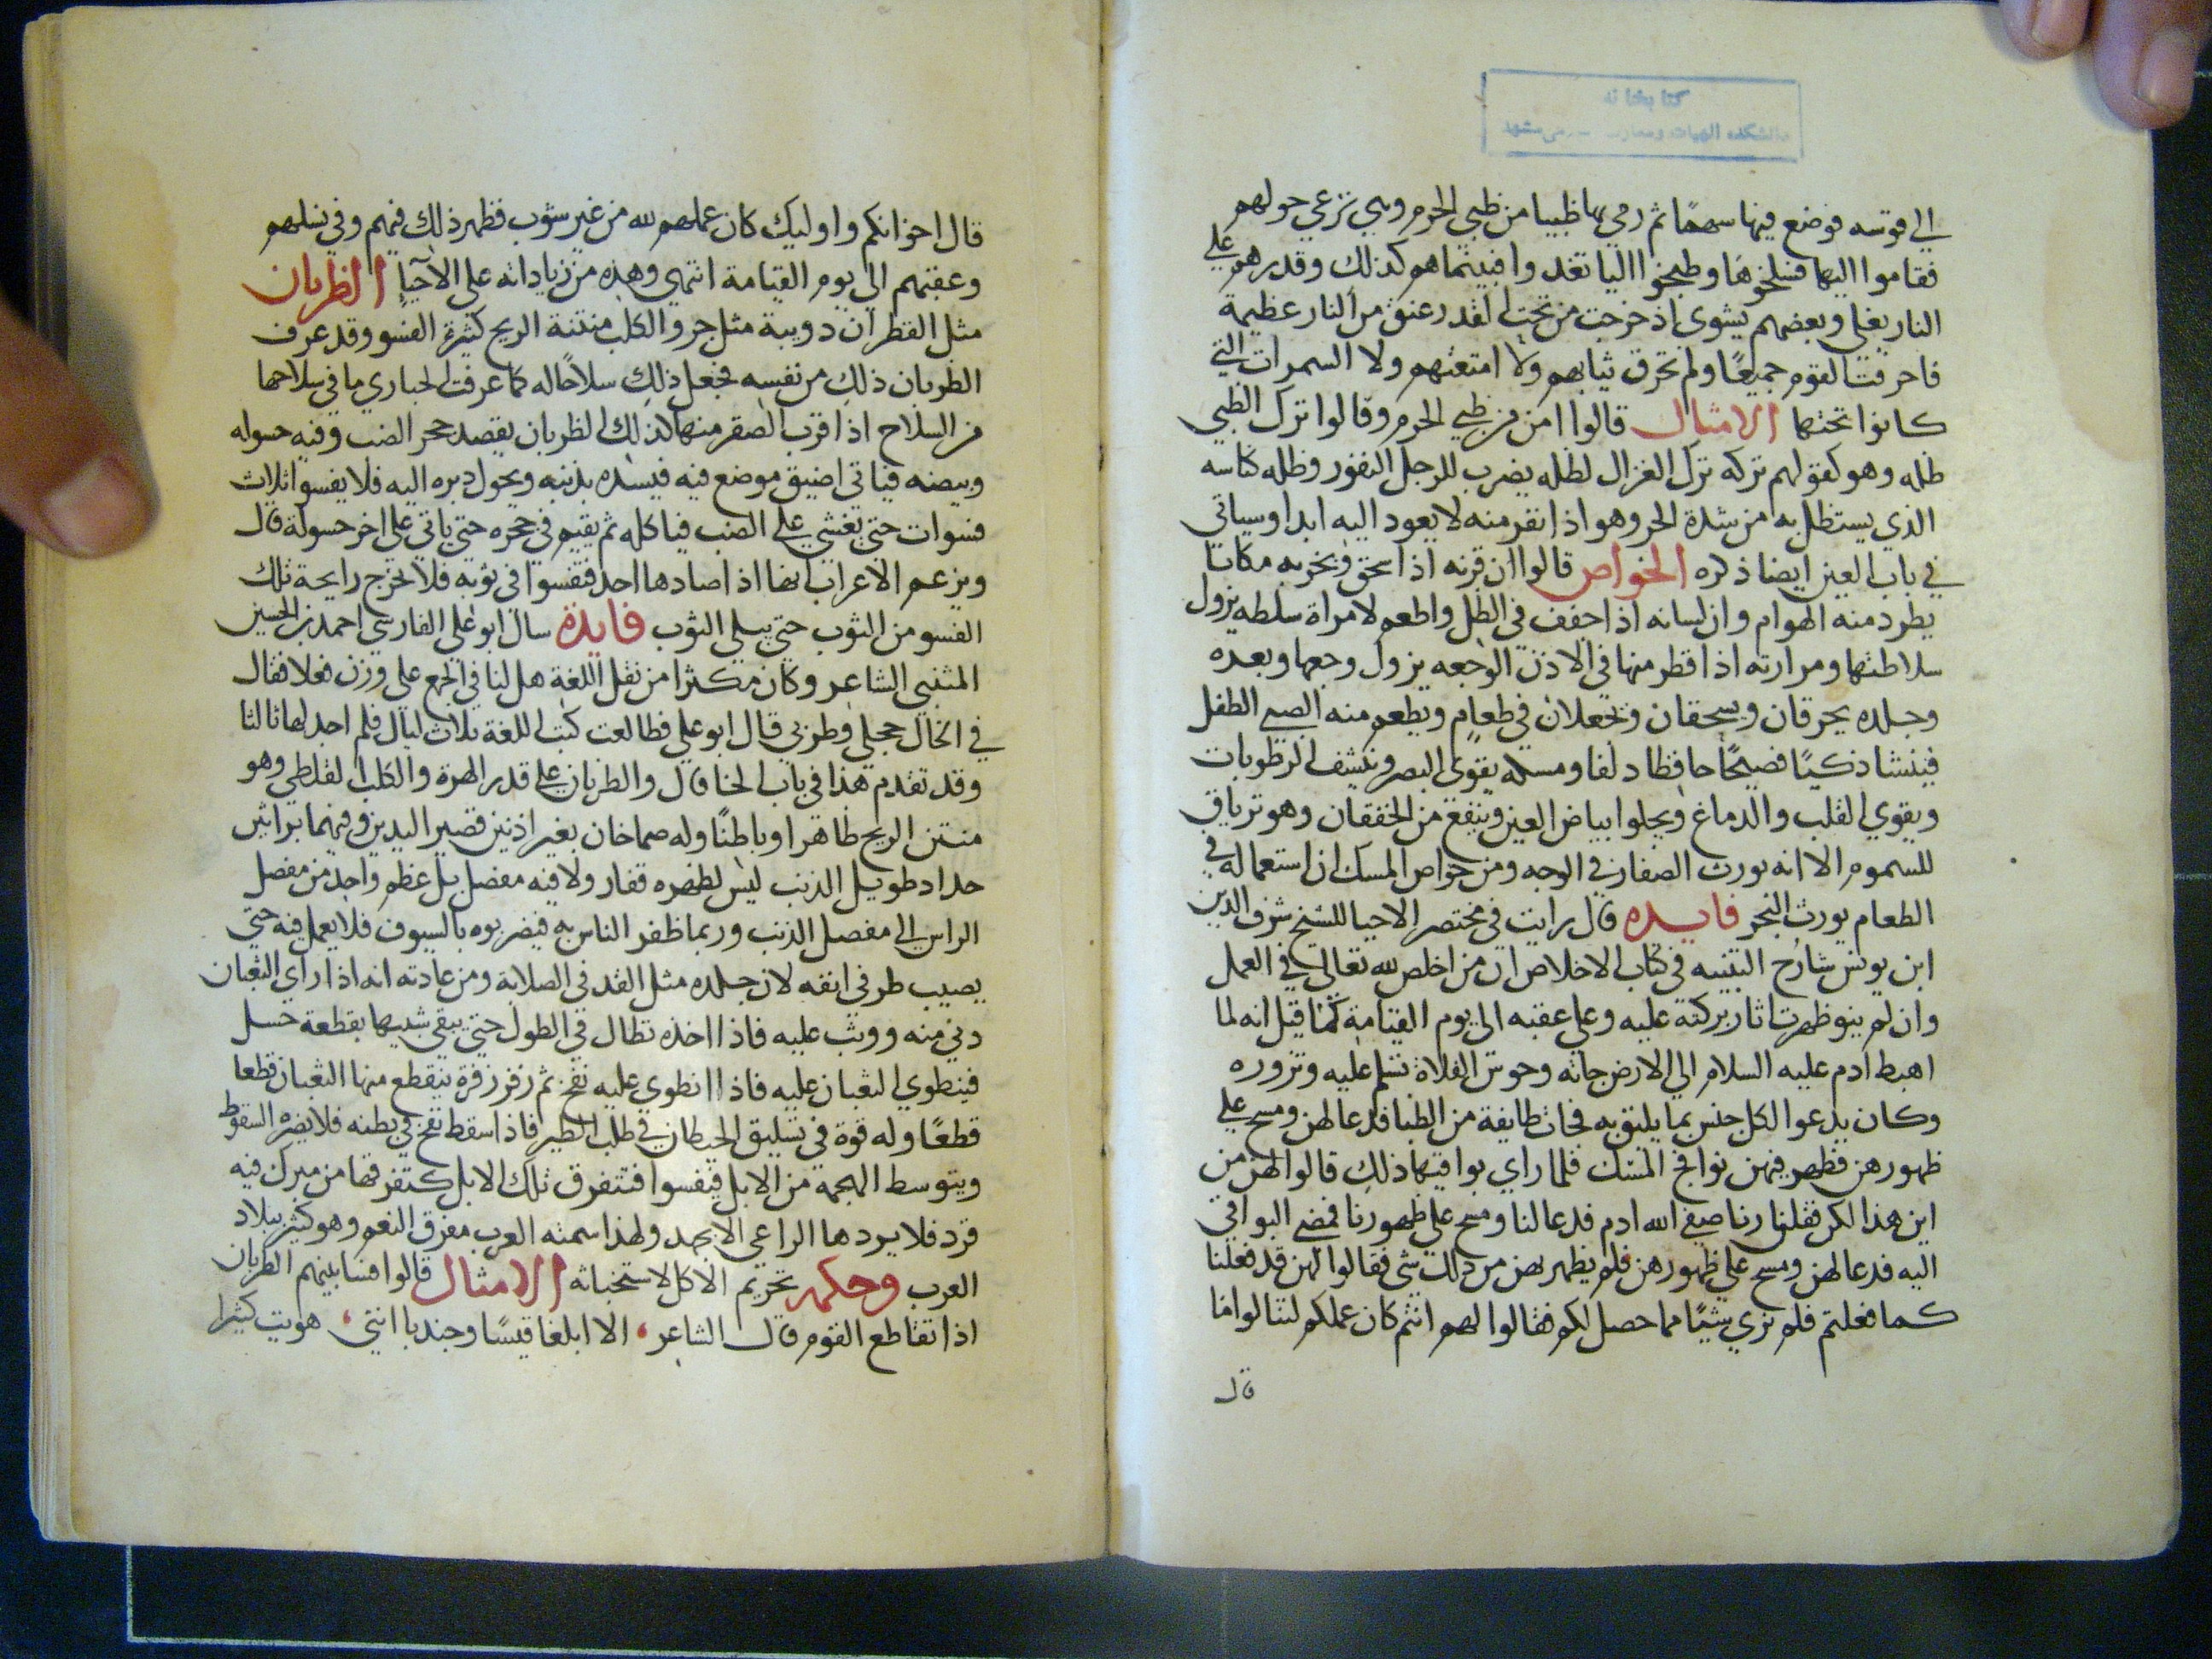 كتابخانه
دانشكده الهيات ومعارف
الي قوسه فوضع فيها سهمًا ثم رمي بها ظبيا من ظبي الحرم وهي ترعي حولهم
فقاموا اليها فسلخوها وطبخوا اليا تغدوا فبينما هو كذلك وقدرهم علي
النار يغلي وبعضهم يشوى اذ خرجت من تحت القدر عنق من النار عظيمة
فاحرقت القوم جميعًا ولم تحرق ثيابهم ولا امتعتهم ولا السمرات التي
كانوا تحتها الامثال قالوا امن من ظبي الحرم وقالوا ترك الظبي
ظله وهو كقولهم تركه ترك الغزال لظله يضرب للرجل النفور وظله كناسه
الذي يستظل به من شدة الحر وهو اذا نفر منه لا يعود اليه ابدا وسياتي
في باب العين ايضا ذكره الخواص قالوا ان قرنه اذا سحق وبخر به مكانا
يطرد منه الهوام وان لسانه اذا جفف في الظل واطعم لامراة سلطه يزول
سلاطتها ومرارته اذا قطر منها في الاذن الوجعه يزول وجعها وبعده
وجلده يحرقان ويسحقان وتجعلان في طعام ويطعم منه الصبي الطفل
فينشا ذكيًا فصيحًا حافظا دلفا ومسكه يقوى البصر وينشف الرطوبات
ويقوي القلب والدماغ ويجلوا بياض العين وينفع من الخفقان وهو ترياق
للسموم الا انه يورث الصفار في الوجه ومن خواص المسك ان استعماله في
الطعام يورث البخر فايده قال رايت في مختصر الاحيا للشيخ شرف الدين
ابن يونس شارح التنبيه في كتاب الاخلاص ان من اخلص لله تعالي في العمل
وان لم ينو ظهرت اثار بركته عليه وعلي عقبه الى يوم القيامة كما قيل انه لما
اهبط ادم عليه السلام الي الارض جاته وحوش الفلاة تسلم عليه وتزوره
وكان يدعوا لكل جنس بما يليق به فجات طايفة من الظبا فدعا لهن ومسح علي
ظهورهن فظهر فيهن نوافج المسك فلما راي بواقيها ذلك قالوا لهن من
اين هذا لكن فقلن زرنا صفي الله ادم فدعا لنا ومسح علي ظهورنا فمضي البواقي
اليه فدعا لهن ومسح علي ظهورهن فلم يظهر بهن من ذلك شي فقالوا لهن قد فعلنا
كما فعلتم فلم نري شيًا مما حصل لكم فقالوا لهم انتم كان عملكم لتنالوا ما
قال
قال اخوانكم واوليك كان عملهم لله من غير سوب فظهر ذلك فيهم وفي نسلهم
وعقبهم الي يوم القيامة انتهي وهذه من زياداته على الاحيا الظربان
مثل القطران دويبة مثل جرو الكلب منتنة الريح كثيرة الفسو وقد عرف
الظربان ذلك من نفسه فجعل ذلك سلاحًا له كما عرفت الحباري ما في سلاحها
من السلاح اذا قرب الصقر منها كذلك الظربان يقصد جحر الضب وفيه حسوله
وبيضه فياتي اضيق موضع فيه فيسده بذنبه ويحول دبره اليه فلا يفسوا ثلاث
فسوات حتي يغشي علي الضب فياكله ثم يقيم في جحره حتي ياتي على اخر حسولة قال
ويزعم الاعراب انها اذا صادها احد فقسوا في ثوبه فلا تخرج رايحة تلك
الفسو من الثوب حتي يبلي الثوب فايدة سال ابو علي الفارسي احمد بن الحسين
المتنبي الشاعر وكان مكثرا من نقل اللغة هل لنا في الجمع علي وزن فعلا فقال
في الحال حجلي وظربي قال ابو علي فطالعت كتب اللغة ثلاث ليال فلم اجد لها ثالثا
وقد تقدم هذا في باب الحا قال والظربان علي قدر الهرة والكلب القلطي وهو
منتن الريح ظاهرا وباطنًا وله صماخان بغير اذنين قصير اليدين وفيهما براثن
حداد طويل الذنب ليس لظهره فقار ولا فيه مفصل بل عظم واحد من مفصل
الراس الي مفصل الذنب وربما ظفر الناس به فيضربوه بالسيوف فلا يعمل فيه حتي
يصيب طرفي انفه لان جلده مثل القد في الصلابة ومن عادته انه اذا راي الثعبان
دني منه ووثب عليه فاذا اخذه تطال في الطول حتي يبقي شبيها بقطعة حسل
فينطوي الثعبان عليه فاذا انطوي عليه نفخ ثم زفر زفرة يتقطع منها الثعبان قطعا
قطعًا وله قوة في تسليق الحيطان في طلب الطير فاذا سقط نفخ في بطنه فلا يضره السقوط
ويتوسط الهجمة من الابل فيفسوا فتتفرق تلك الابل كتفرقها من مبرك فيه
قرد فلا يردها الراعي الا بجهد ولهذا سمته العرب مفرق النعم وهو كثير ببلاد
العرب وحكمه تحريم الاكل لاستخباثه الامثال قالوا فسا بينهم الظربان
اذا تقاطع القوم قال الشاعر الا ابلغا قيسًا وجندبا انني هويت كثيرا